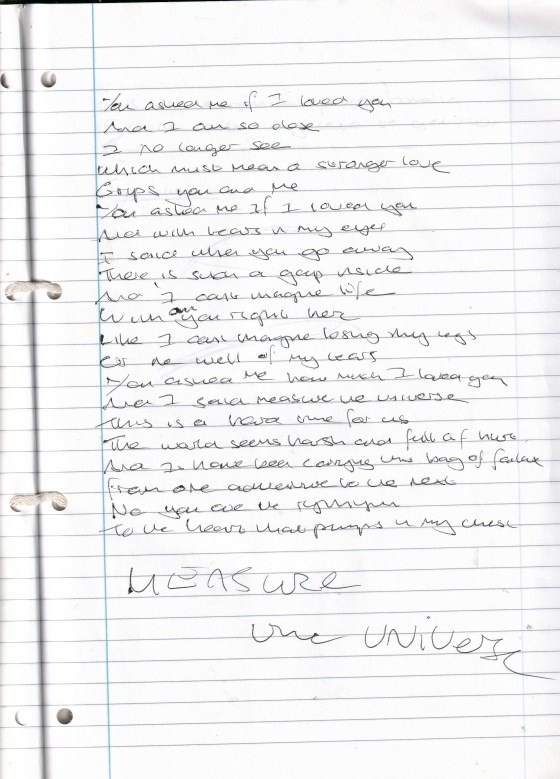 You asked me if I loved you
And I am so close
I no longer see
Which must mean a stronger love
Grips you and me
You asked me If I loved you
And with tears in my eyes
I said when you go away
There is such a gap inside
And I cant imagine life
With you right here
Like I cant imagine losing my legs
Or the well of my tears
You asked me how much I loved you
And I said measure the universe
This is a hard time for us
The world seems harsh and full of hurt.
And I have been carrying this bag of failure
From one adventure to the next
No you are the
To the heart that pumps in my chest
MEASURE
the UNIVERSE